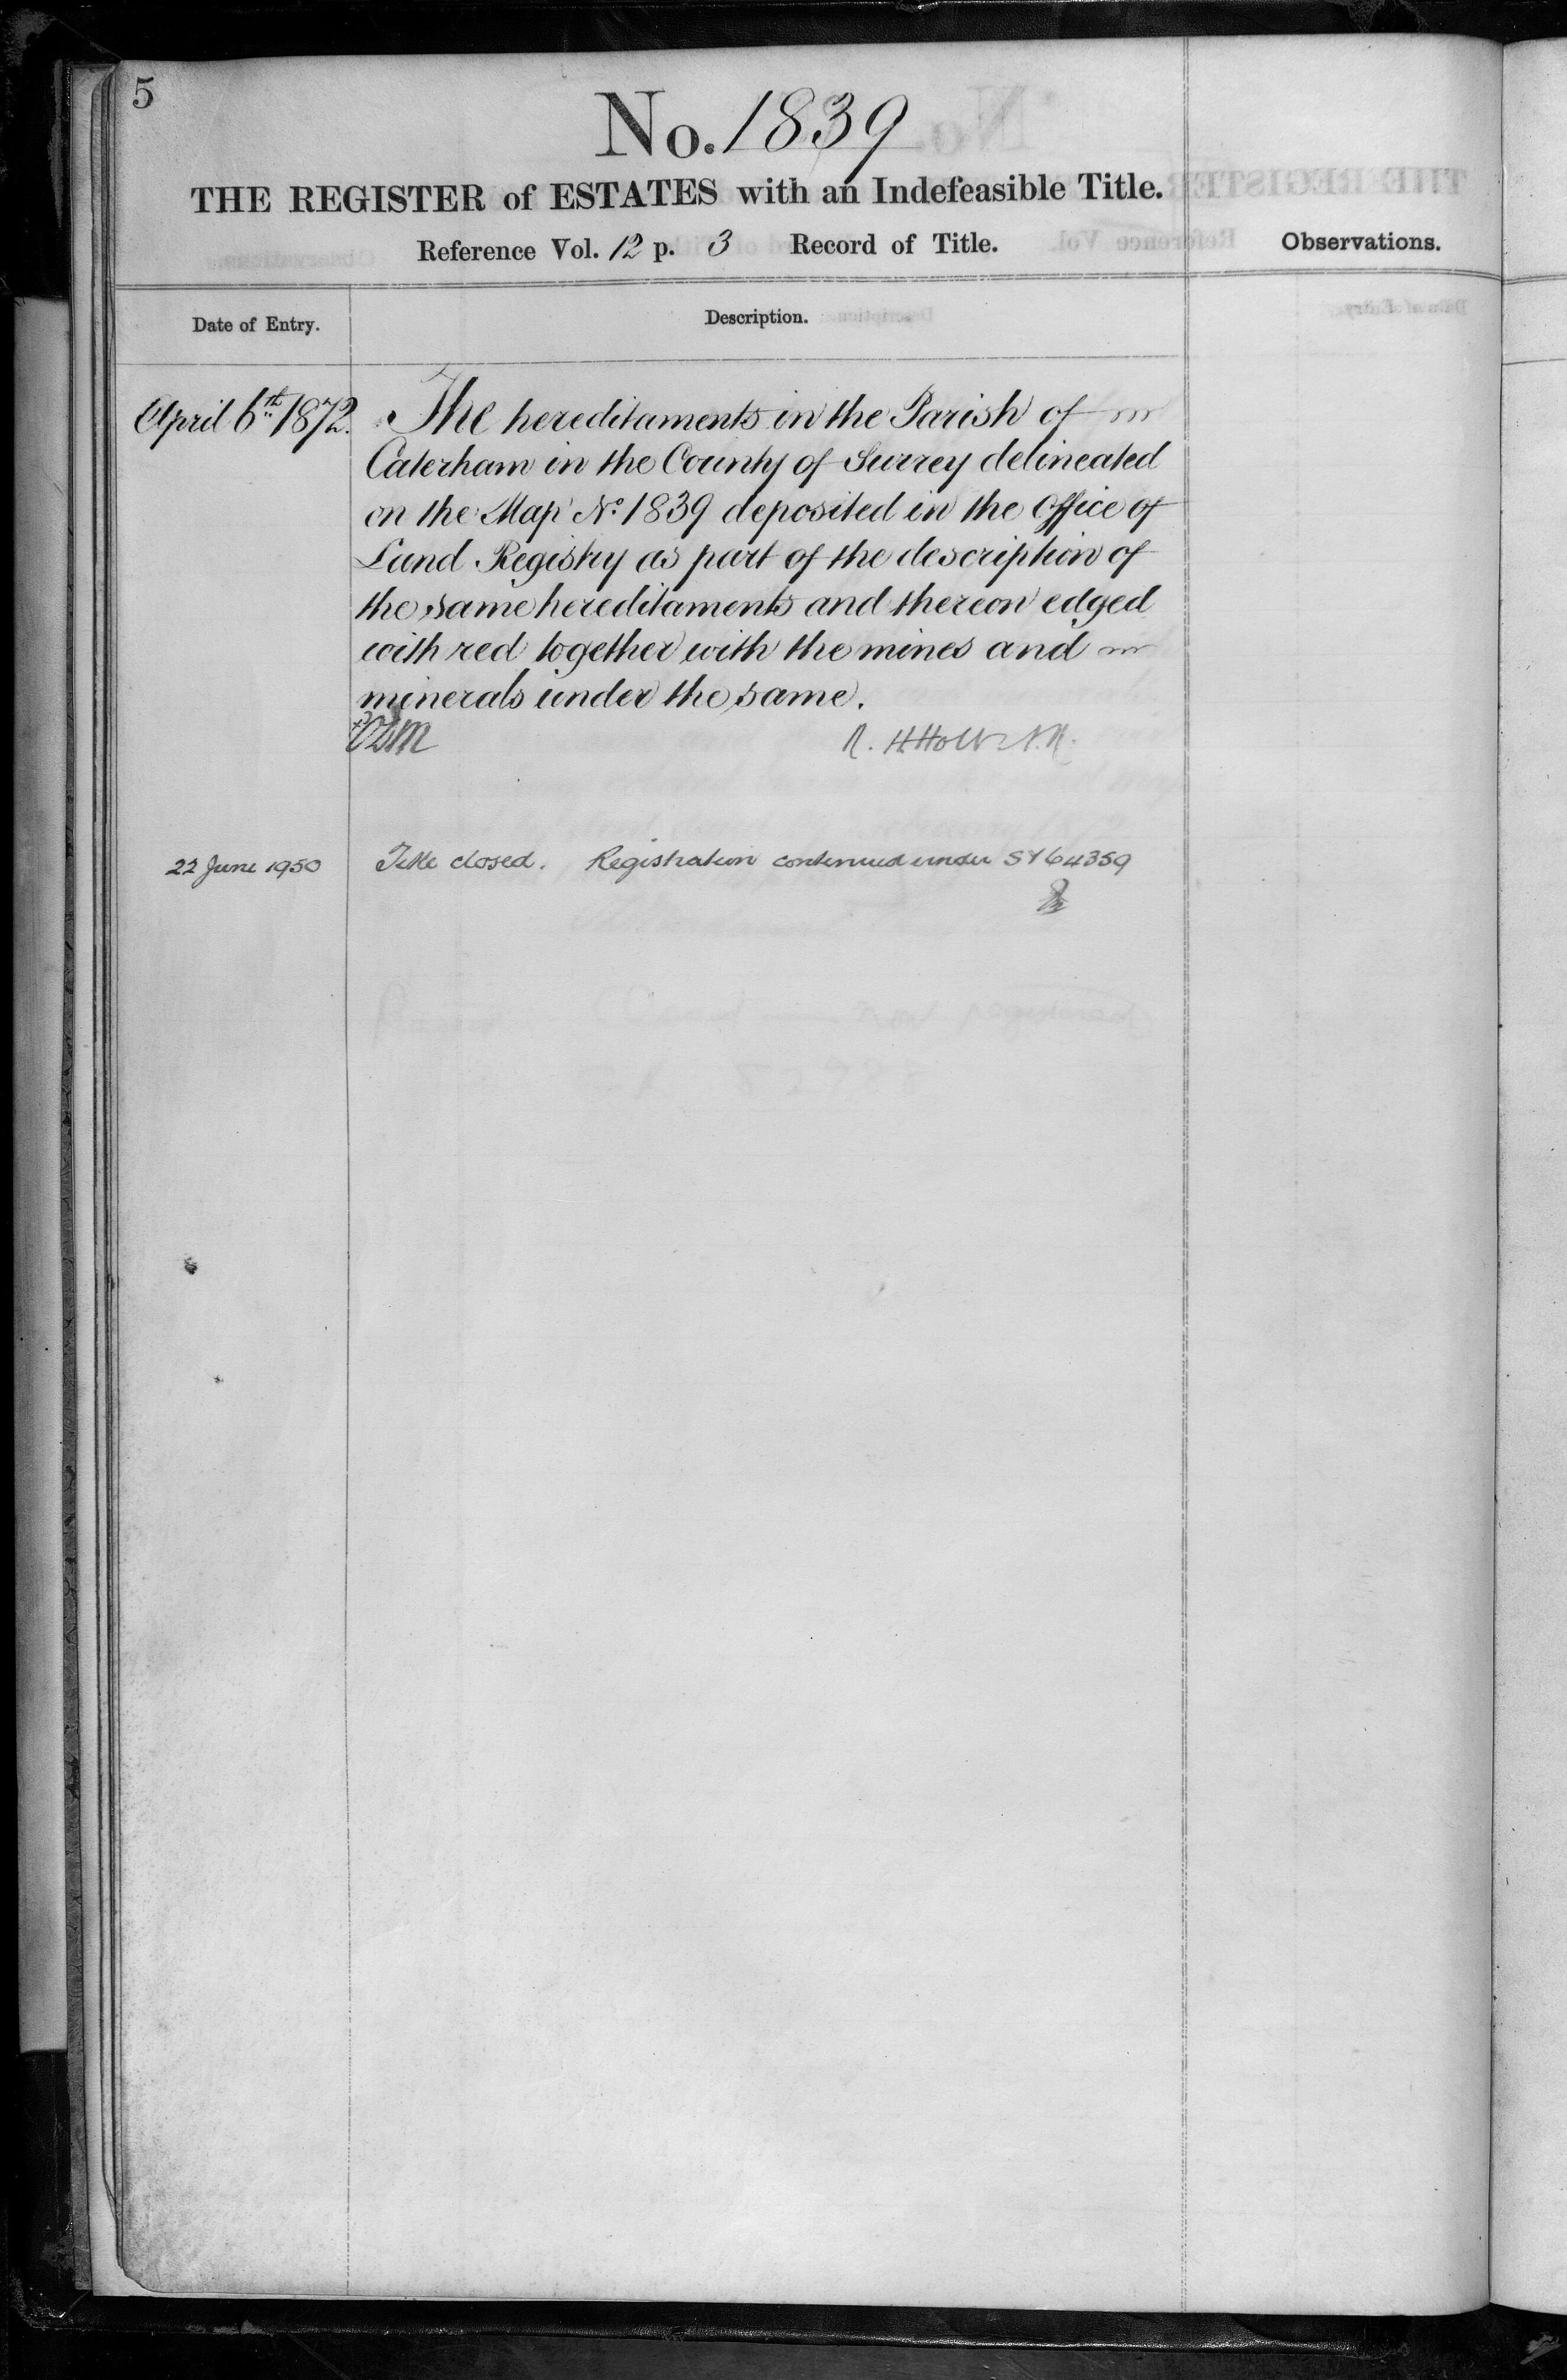 5
No. 1839
THE REGISTER of ESTATES with an Indefeasible Title.
Reference Vol. 12 p. 3 Record of Title.
Observations.
Date of Entry.
Description.
April 6th 1872.
The hereditaments in the Parish of
Caterham in the County of Surrey delineated
on the Map No. 1839 deposited in the Office of
Land Registry as part of the description of
the same hereditaments and thereon edged
with red together with the mines and
minerals under the same.
R. H. Holt
22 June 1950
Title closed. Registration continued under SY64359